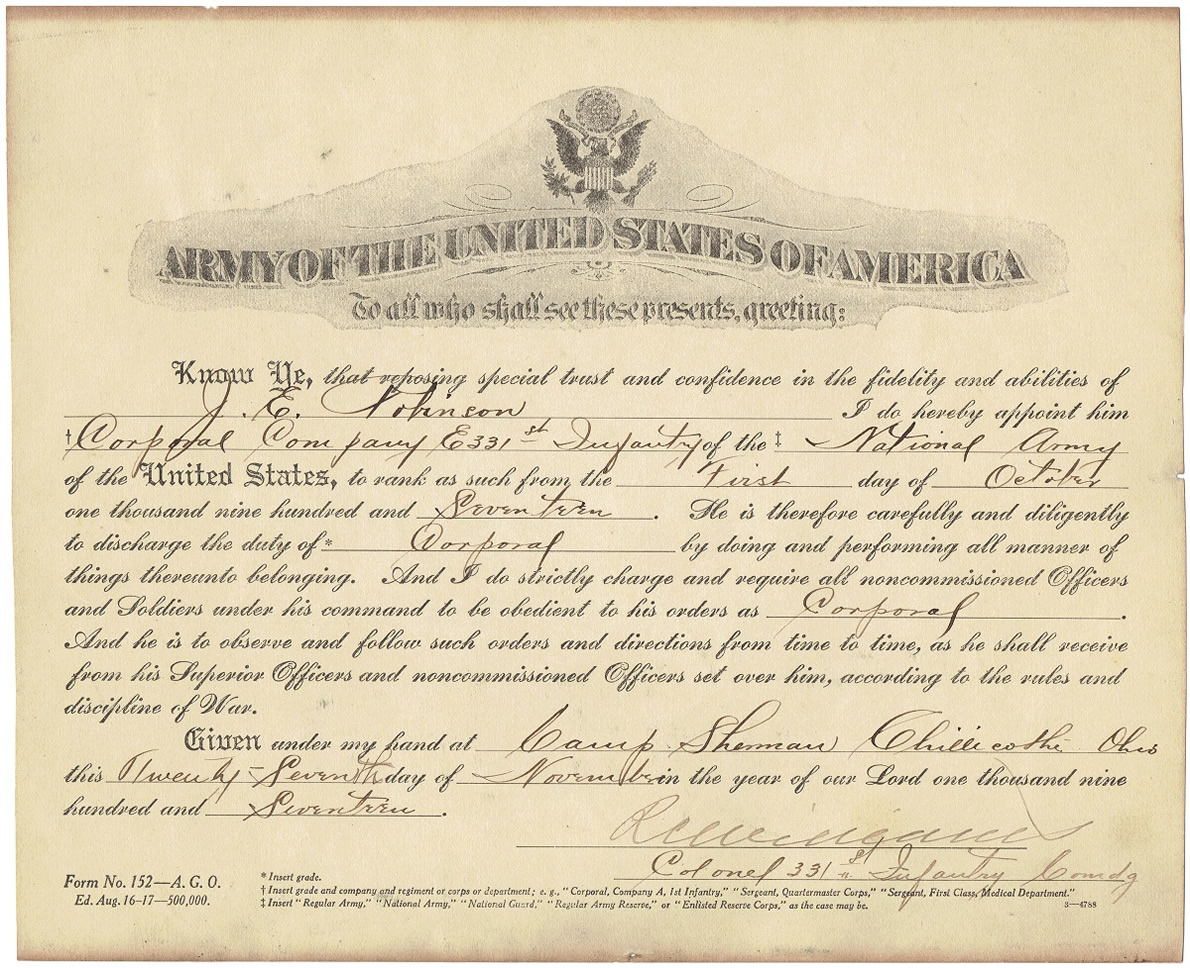 ARMY OF THE UNITED STATES OF AMERICA
To all who shall see these presents, greeting:
Know Ye, that reposing special trust and confidence in the fidelity and abilities of
J. E. Robinson I do hereby appoint him
† Corporal Company E 331st Infantry of the ‡ National Army
of the United States, to rank as such from the First day of October
one thousand nine hundred and Seventeen. He is therefore carefully and diligently
to discharge the duty of * Corporal by doing and performing all manner of
things thereunto belonging. And I do strictly charge and require all noncommissioned Officers
and Soldiers under his command to be obedient to his orders as Corporal.
And he is to observe and follow such orders and directions from time to time, as he shall receive
from his Superior Officers and noncommissioned Officers set over him, according to the rules and
discipline of War.
Given under my hand at Camp Sherman Chillicothe Ohio
this Twenty-Seventh day of November in the year of our Lord one thousand nine
hundred and Seventeen.
Colonel 331st Infantry Comdg
Form No. 152—A. G. O.
Ed. Aug. 16-17—500,000.
* Insert grade.
† Insert grade and company and regiment or corps or department; e. g., "Corporal, Company A, 1st Infantry," "Sergeant, Quartermaster Corps," "Sergeant, First Class, Medical Department."
‡ Insert "Regular Army," "National Army," "National Guard," "Regular Army Reserve," or "Enlisted Reserve Corps," as the case may be.
3—4788